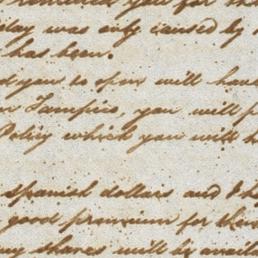 you for the
delay was only caused by
has been.
you to open will have
Tampico, you will
Policy which you will
Spanish dollars and I
good premium for
shares will be